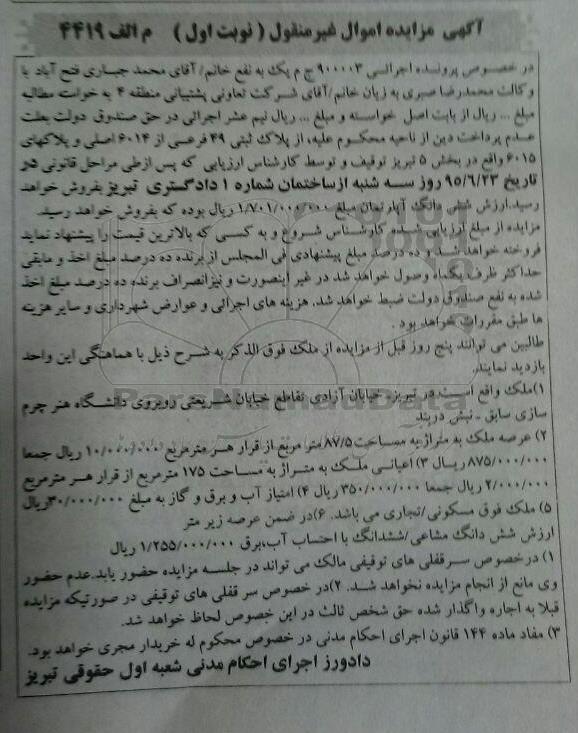 آگهی مزایده اموال غیرمنقول ( نوبت اول ) م الف ۴۴۱۹
در خصوص پرونده اجرائی ۹۰۰۰۰۳ ج م یک به نفع خانم/ آقای محمد جباری فتح آباد با
وکالت محمدرضا صبری به زیان خانم /آقای شرکت تعاونی پشتیبانی منطقه ۴ به خواسته مطالبه
مبلغ ... ریال از بابت اصل خواسته و مبلغ ... ریال نیم عشر اجرائی در حق صندوق دولت بعلت
عدم پرداخت دین از ناحیه محکوم علیه، از پلاک ثبتی ۴۹ فرعی از ۶۰۱۴ اصلی و پلاکهای
۶۰۱۵ واقع در بخش ۵ تبریز توقیف و توسط کارشناس ارزیابی که پس ازطی مراحل قانونی در
تاریخ ۹۵/۶/۲۳ روز سه شنبه ازساختمان شماره ۱ دادگستری تبریز بفروش خواهد
رسید.ارزش شش دانگ آپارتمان مبلغ ۱/۷۰۱/۰۰۰/۰۰۰ ریال بوده که بفروش خواهد رسید.
مزایده از مبلغ ارزیابی شده کارشناس شروع و به کسی که بالاترین قیمت را پیشنهاد نماید
فروخته خواهد شد و ده درصد مبلغ پیشنهادی فی المجلس از برنده ده درصد مبلغ اخذ و مابقی
حداکثر ظرف یکماه وصول خواهد شد در غیر اینصورت و نیزانصراف برنده ده درصد مبلغ اخذ
شده به نفع صندوق دولت ضبط خواهد شد. هزینه های اجرائی و عوارض شهرداری و سایر هزینه
ها طبق مقررات خواهد بود .
طالبین می توانند پنج روز قبل از مزایده از ملک فوق الذکر به شرح ذیل با هماهنگی این واحد
بازدید نمایند.
۱)ملک واقع است در تبریز- خیابان آزادی تقاطع خیابان شریعتی روبروی دانشگاه هنر چرم
سازی سابق - نبش دربند
۲) عرصه ملک به متراژ به مساحت ۸۷/۵ متر مربع از قرار هر مترمربع ۱۰/۰۰۰/۰۰۰ ریال جمعا
۸۷۵/۰۰۰/۰۰۰ ریال ۳) اعیانی ملک به متراژ به مساحت ۱۷۵ مترمربع از قرار هر مترمربع
۲/۰۰۰/۰۰۰ ریال جمعا ۳۵۰/۰۰۰/۰۰۰ ریال ۴) امتیاز آب و برق و گاز به مبلغ ۳۰/۰۰۰/۰۰۰ریال
۵) ملک فوق مسکونی/تجاری می باشد. ۶)در ضمن عرصه زیر متر
ارزش شش دانگ مشاعی/ششدانگ با احتساب آب،برق ۱/۲۵۵/۰۰۰/۰۰۰ ریال
۱) درخصوص سرقفلی های توقیفی مالک می تواند در جلسه مزایده حضور یابد.عدم حضور
وی مانع از انجام مزایده نخواهد شد. ۲)در خصوص سر قفلی های توقیفی در صورتیکه مزایده
قبلا به اجاره واگذار شده حق شخص ثالث در این خصوص لحاظ خواهد شد.
۳) مفاد ماده ۱۴۴ قانون اجرای احکام مدنی در خصوص محکوم له خریدار مجری خواهد بود.
دادورز اجرای احکام مدنی شعبه اول حقوقی تبریز